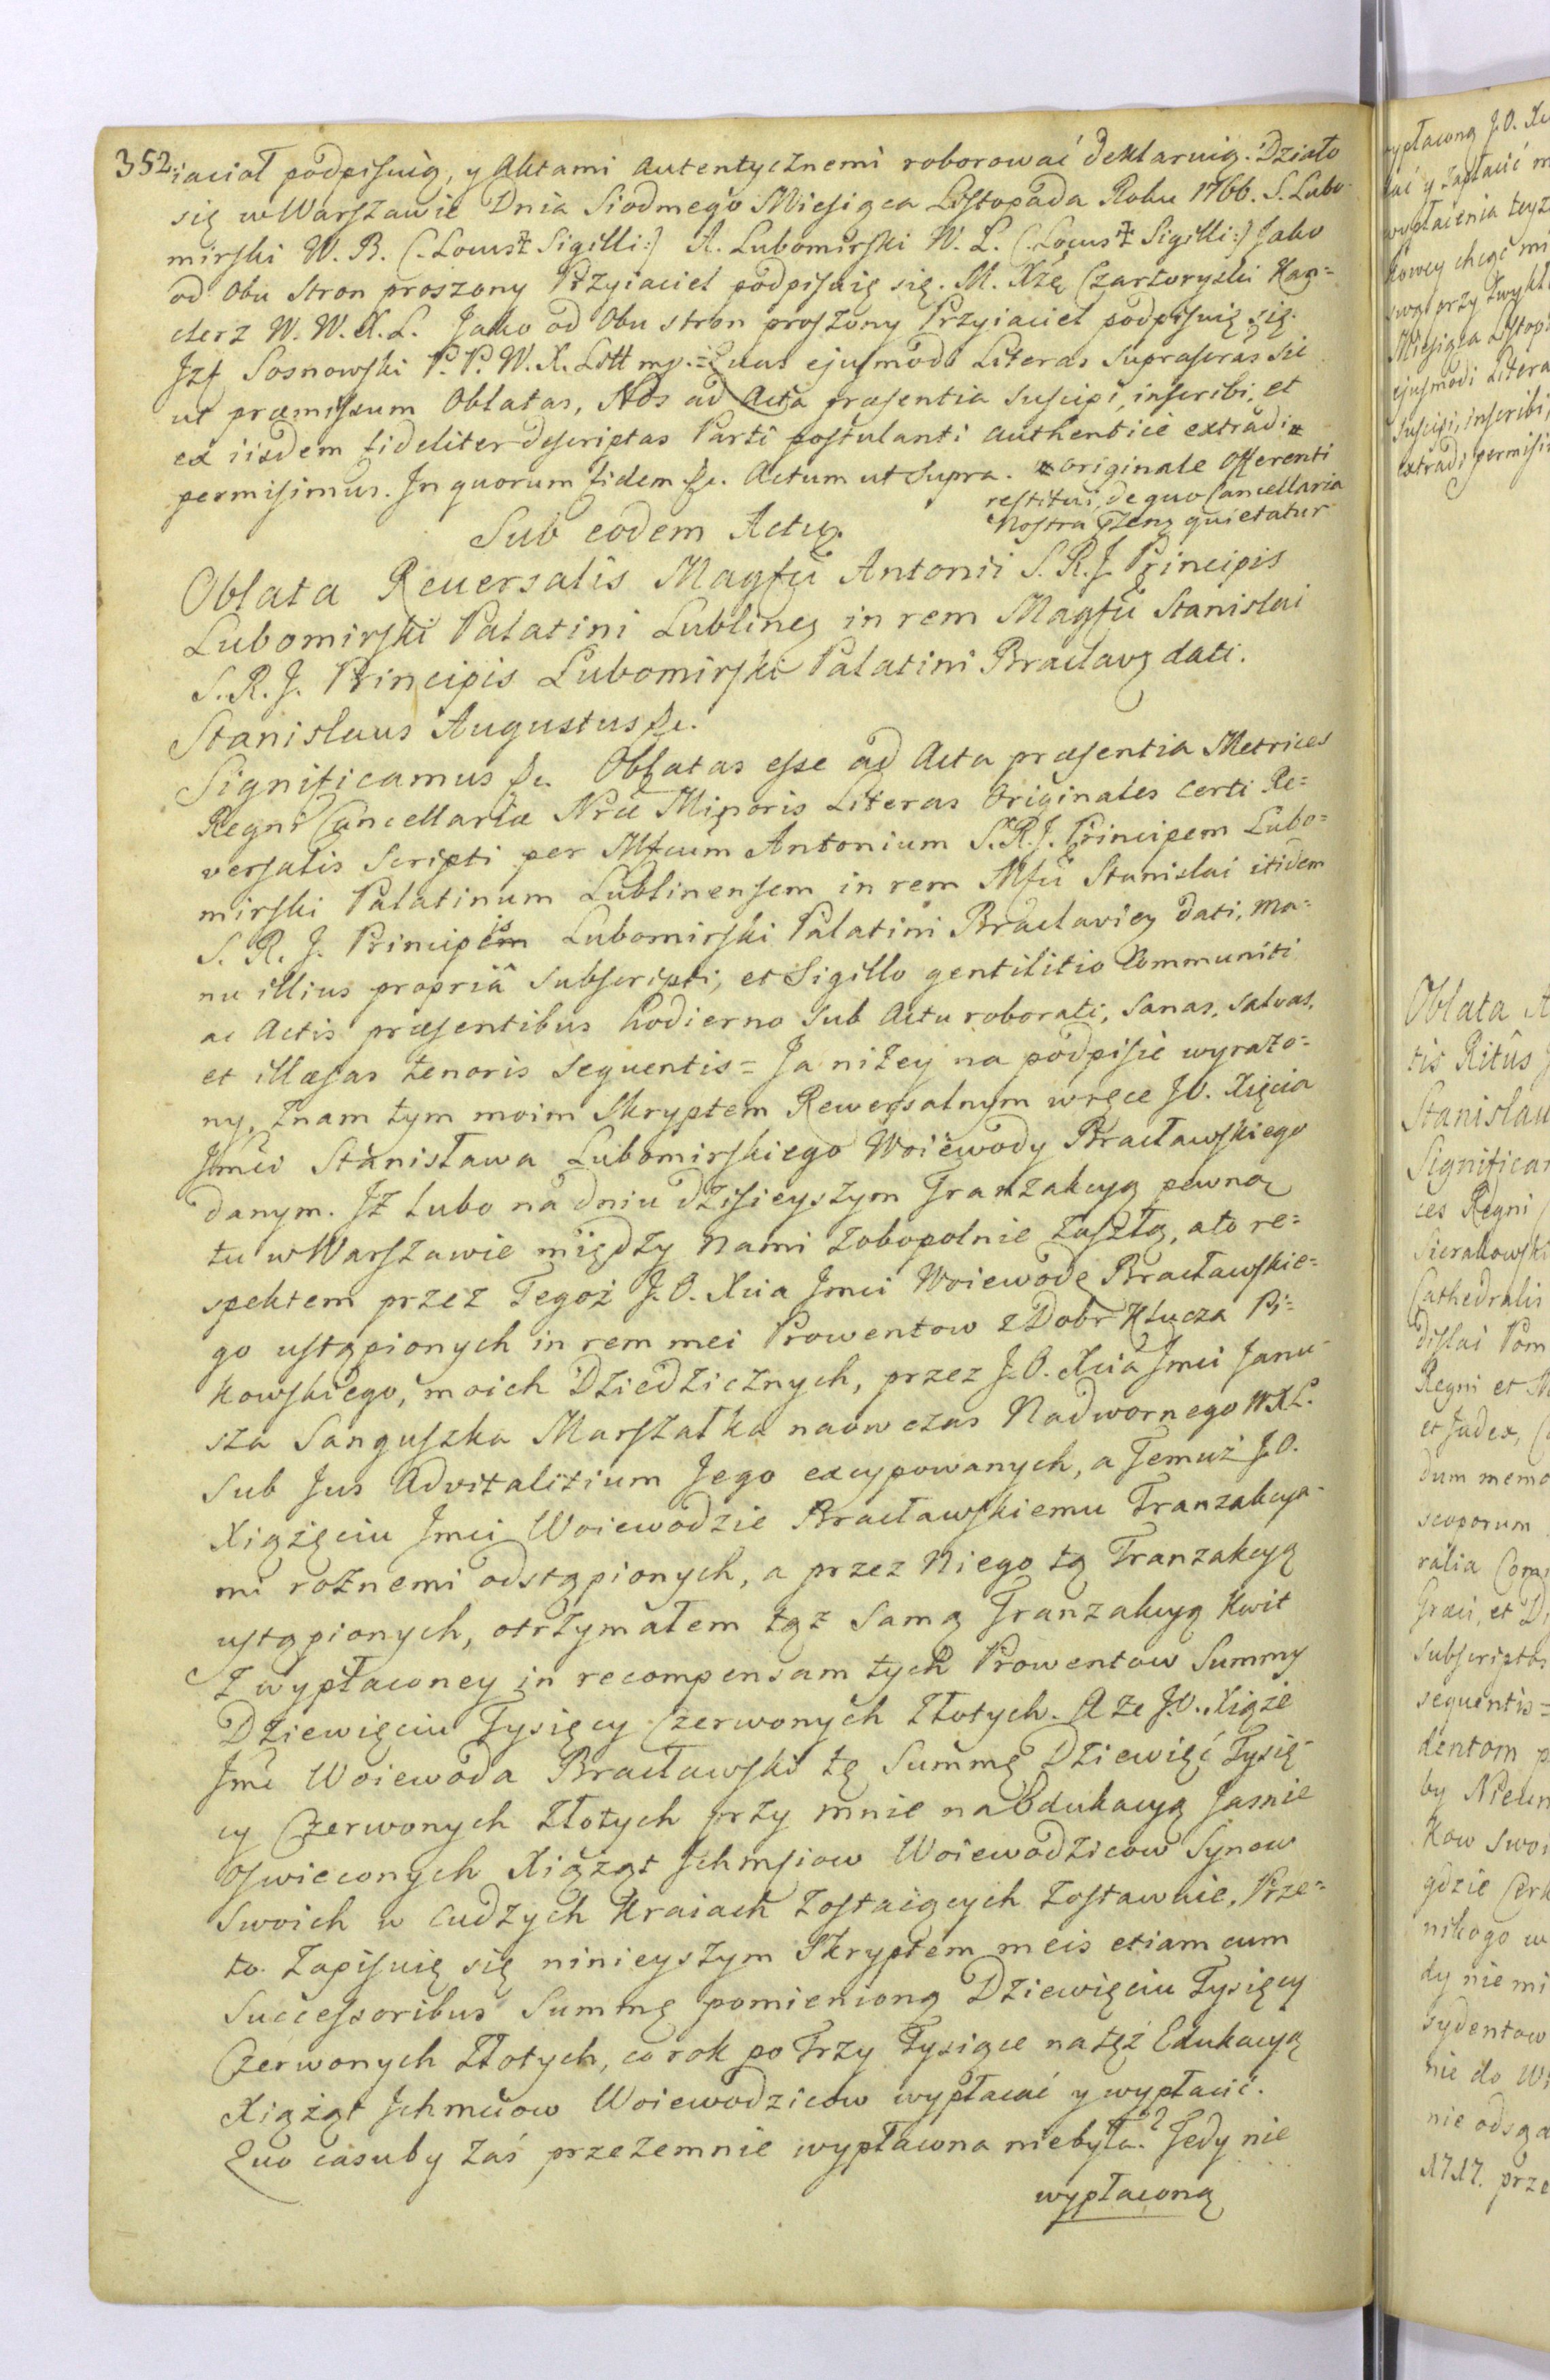 352.
iaciał podpisuię, y Aktami autentycznemi roborować deklaruię. Działo
się w Warszawie Dnia Siodmego Miesiąca Listopada Roku 1766. S. Lubo-
mirski W. B. (:Locus Sigilli:) A. Lubomirski W. L. (:Locus Sigilli:) Jako
od Obu Stron proszony Przyiaciel podpisuię się. M. Xżę Czartoryski Kan=
clerz W. W. X. L. Jako od Obu stron proszony Przyiaciel podpisuię się.
Jzf Sosnowski P. P. W. X. Litt mp. = Quas ejusmodi Literas Suprascras sic
ut præmissum Oblatas, Nos ad Acta præsentia Suscipi, inscribi, et
ex iisdem fideliter descriptas Parti postulanti authentice extradi
permisimus. In quorum fidem &c. Actum ut Supra. originale Offerenti
restitui, de quo Cancellaria
Nostra quietatur
Sub eodem Actu.
Oblata Reversalis Magfci Antonii S. R. J. Principis
Lubomirski Palatini Lublinen in rem Magfci Stanislai
S. R. J. Principis Lubomirski Palatini Braclaven dati.
Stanislaus Augustus &c.
Significamus &c. Oblatas esse ad Acta præsentia Metrices
Regni Cancellariæ Nræ Minoris Literas Originales certi Re=
versalis Scripti per Mfcum Antonium S. R. J. Principem Lubo=
mirski Palatinum Lublinensem in rem Mfci Stanislai itidem
S. R. J. Principis Lubomirski Palatini Braclavien dati, ma=
nu illius propriâ Subscripti, et Sigillo gentilitio Communiti
ac Actis præsentibus hodierno Sub Actu roborati, Sanas, salvas,
et illæsas tenoris sequentis = Ja niżey na podpisie wyrażo=
ny, Znam tym moim Skryptem Rewersalnym w ręce J.O. Xięcia
Jmci Stanisława Lubomirskiego Woiewody Bracławskiego
danym. Jż lubo na dniu dzisieyszym Tranzakcyą pewną
tu w Warszawie między Nami Zobopolnie Zaszłą, a to re=
spektem przez Tegoż J. O. Xcia Jmci Woiewodę Bracławskie=
go ustąpionych in rem mei Prowentow z Dobr Klucza Pi=
kowskiego, moich Dziedzicznych, przez J. O. Xcia Jmci Janu-
sza Sanguszka Marszałka naowczas Nadwornego W X L.
Sub Jus Advitalitium Jego excypowanych, a Temuż J. O.
Xiążęciu Jmci Woiewodzie Bracławskiemu Tranzakcya-
mi rożnemi odstąpionych, a przez Niego tą Tranzakcyą
ustąpionych, otrzymałem tąż samą Tranzakcyą Kwit
Z wypłaconey in recompensam tych Prowentow Summy
Dziewięciu Tysięcy Czerwonych Złotych. A że J. O. Xiąże
Jmć Woiewoda Bracławski tę Summę Dziewięć Tysię-
cy Czerwonych Złotych przy mnie na Edukacyą Jasnie
Oswieconych Xiążąt Jchmsiow Woiewodzicow Synow
Swoich w cudzych Kraiach Zostaiących Zostawuie, Prze=
to Zapisuię się ninieyszym Skryptem meis etiam cum
Successoribus Summę pomienioną Dziewięciu Tysięcy
Czerwonych Złotych, co rok po Trzy Tysiące na tęż Edukacyą
Xiążąt Jchmciow Woiewodzicow wypłacać y wypłacić.
Quo casu by Zaś przezemnie wypłacona niebyła? Tedy nie
wypłaconą
wypłaconą J. O. Xci
Miesiąca Listop
ejusmodi Litera
Suscipi, inscribi,
extradi permisi
Oblata
tis Ritûs
Stanislau
Significa
ces Regni
Sierakowski
Cathedralis
dislai Pom
Regni et M
et Judex,
dum memo
scoporum
ralia Com
Græci, et D
subscriptas
sequentis =
dentom p
by Nieun
kow swoi
gdzie Cerk
nikogo w
dy nie mi
sydentow
nie do W
nie odsąd
1717. prze